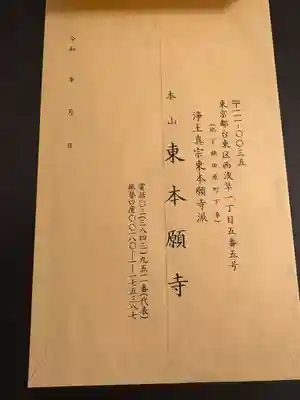 〒一一一-〇〇三五
東京都台東区西浅草一丁目五番五号
(地下鉄田原町下車)
浄土真宗東本願寺派
本山 東本願寺
電話〇三(三八四三)九五一一番(代表)
振替口座〇〇一八〇-一-一七五三八七
令和 年 月 日